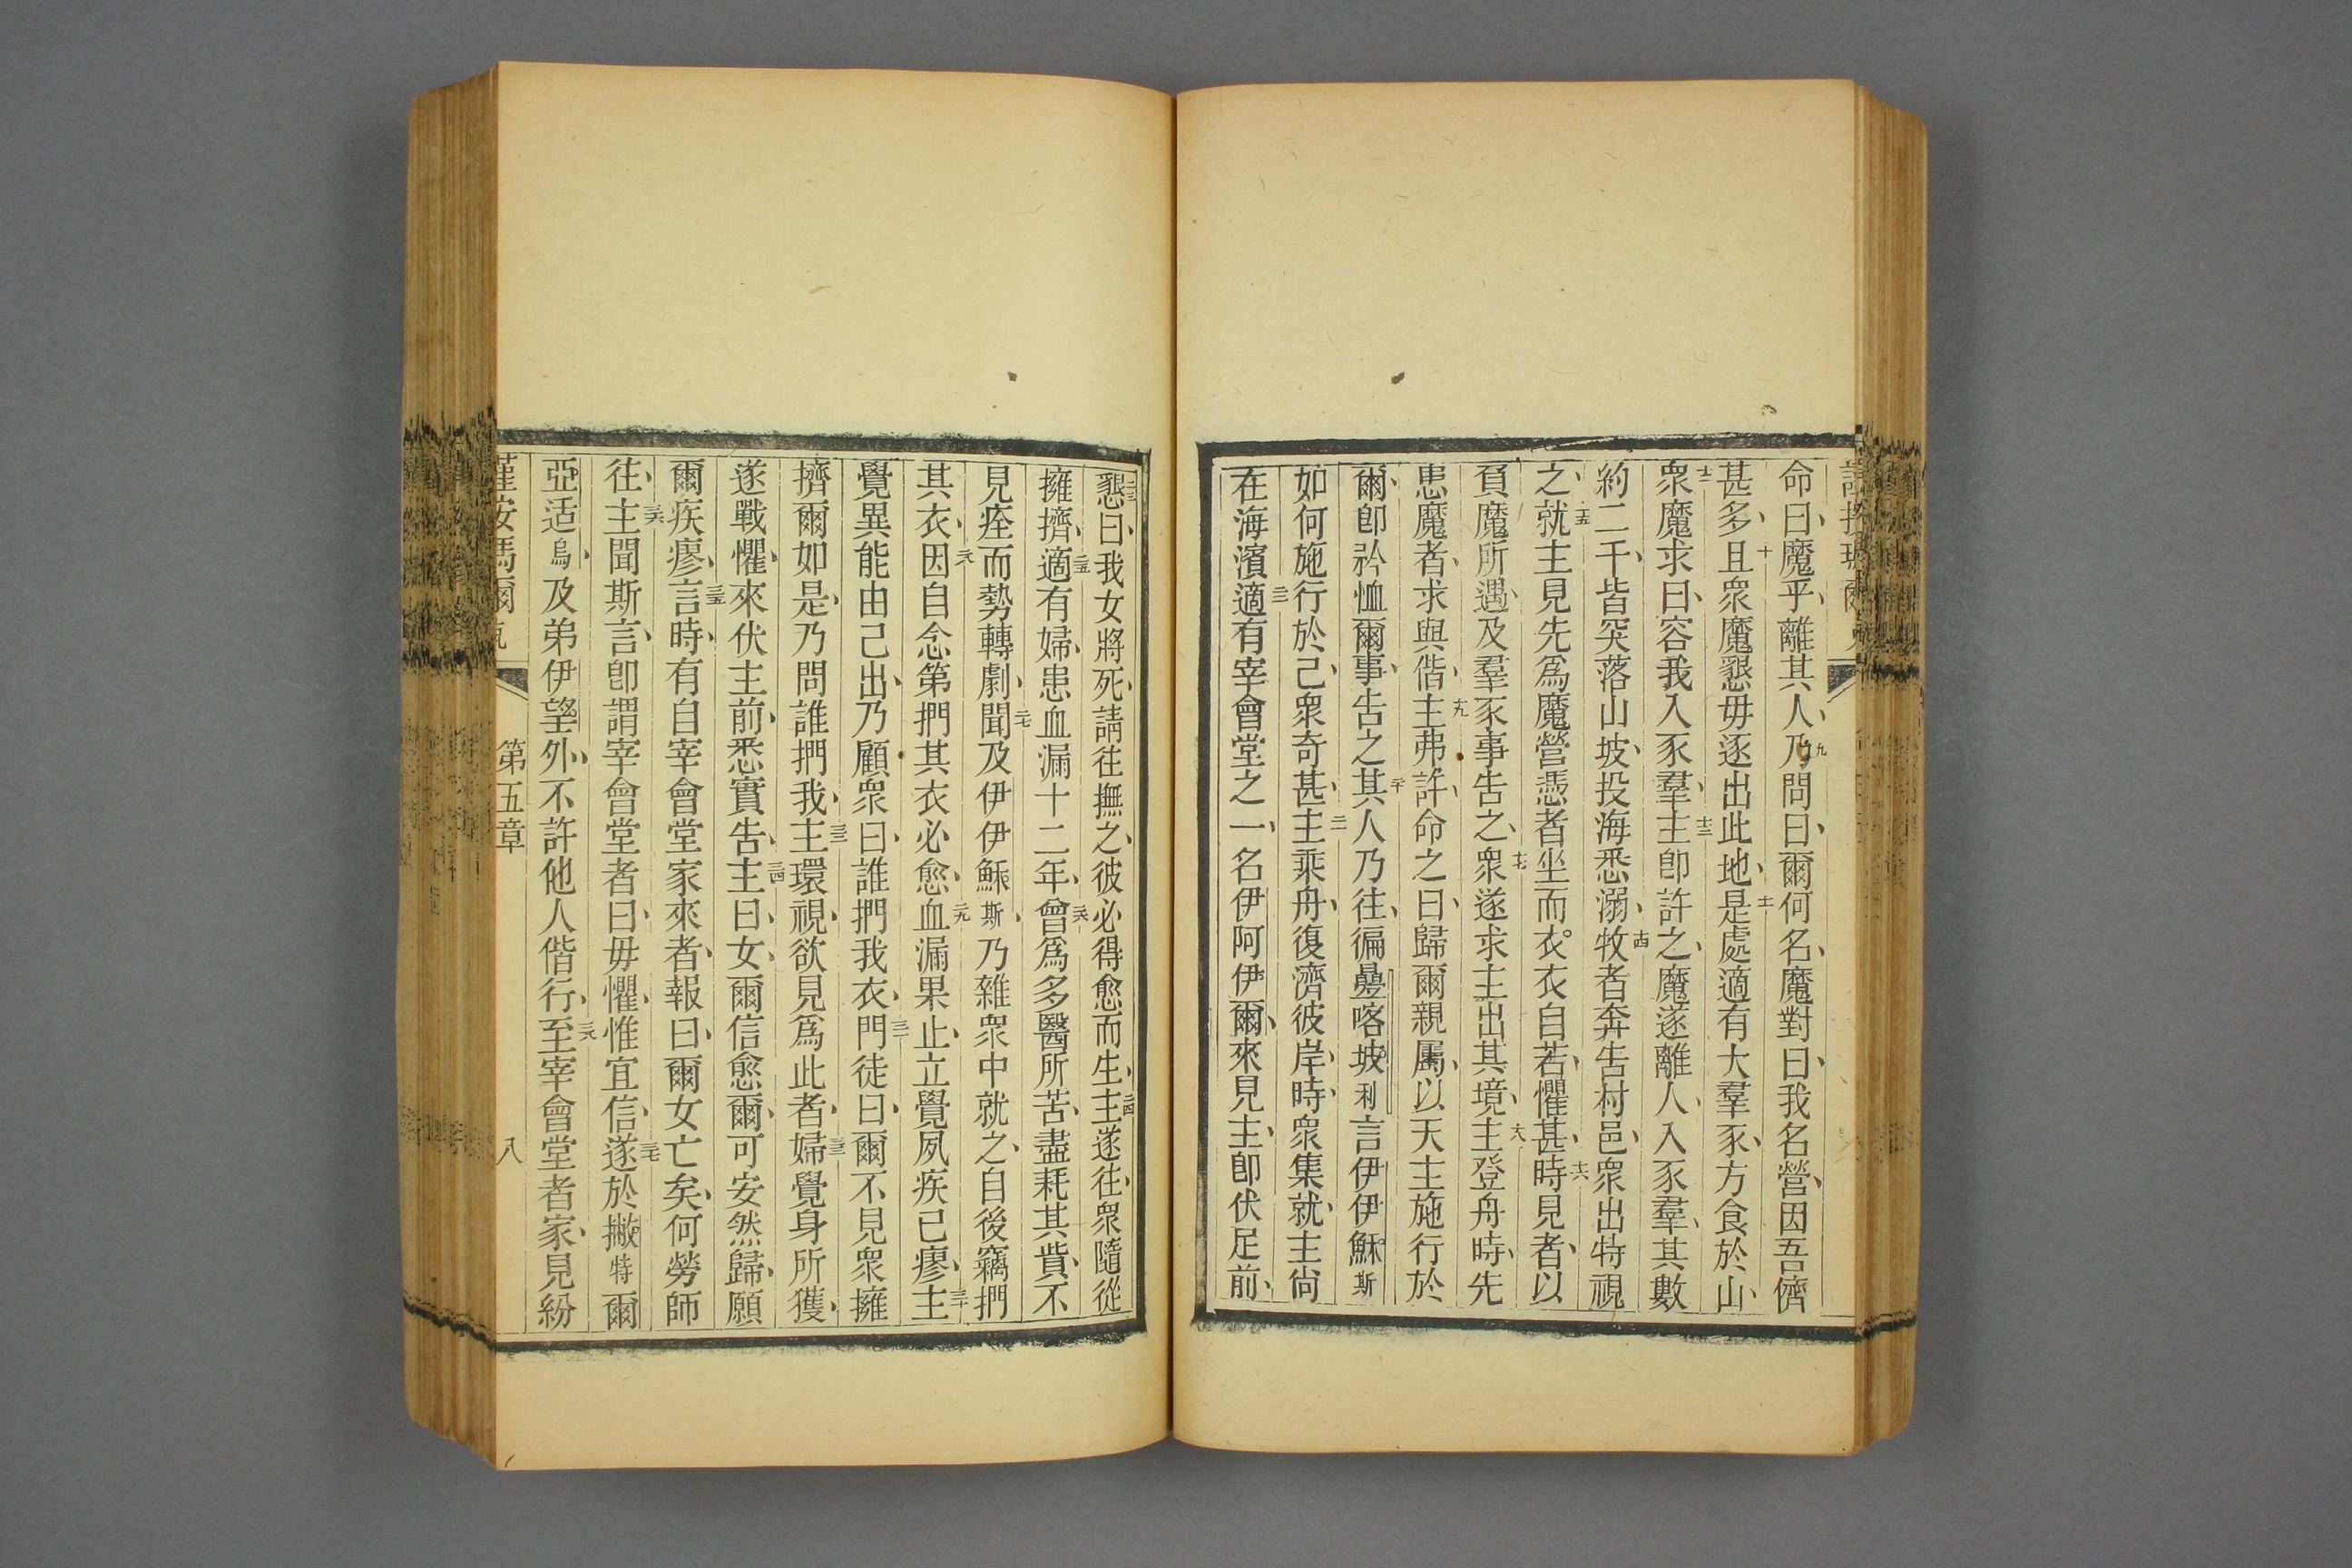 命曰魔乎離其人九乃問曰爾何名魔對曰我名營因吾儕
甚多十且衆魔懇毋逐出此地十一是處適有大羣豕方食於山
十二衆魔求曰容我入豕羣十三主卽許之魔遂離人入豕羣其數
約二千皆突落山坡投海悉溺十四牧者奔告村邑衆出特視
之十五就主見先爲魔營憑者坐而衣衣自若懼甚十六時見者以
負魔所遇及羣豕事告之十七衆遂求主出其境十八主登舟時先
患魔者求與偕十九主弗許命之曰歸爾親屬以天主施行於
爾卽矜恤爾事告之二十其人乃往徧疊喀坡利言伊伊穌斯
如何施行於己衆奇甚二一主乘舟復濟彼岸時衆集就主尙
在海濱二二適有宰會堂之一名伊阿伊爾來見主卽伏足前
二三懇曰我女將死請往撫之彼必得愈而生二四主遂往衆隨從
擁擠二五適有婦患血漏十二年二六曾爲多醫所苦盡耗其貲不
見痊而勢轉劇二七聞及伊伊穌斯乃雜衆中就之自後竊捫
其衣二八因自念第捫其衣必愈二九血漏果止立覺夙疾已瘳三十主
覺異能由己出乃顧衆曰誰捫我衣三一門徒曰爾不見衆擁
擠爾如是乃問誰捫我三二主環視欲見爲此者三三婦覺身所獲
遂戰懼來伏主前悉實告三四主曰女爾信愈爾可安然歸願
爾疾瘳三五言時有自宰會堂家來者報曰爾女亡矣何勞師
往三六主聞斯言卽謂宰會堂者曰毋懼惟宜信三七遂於撇特爾
亞适烏及弟伊望外不許他人偕行三八至宰會堂者家見紛
第五章 八